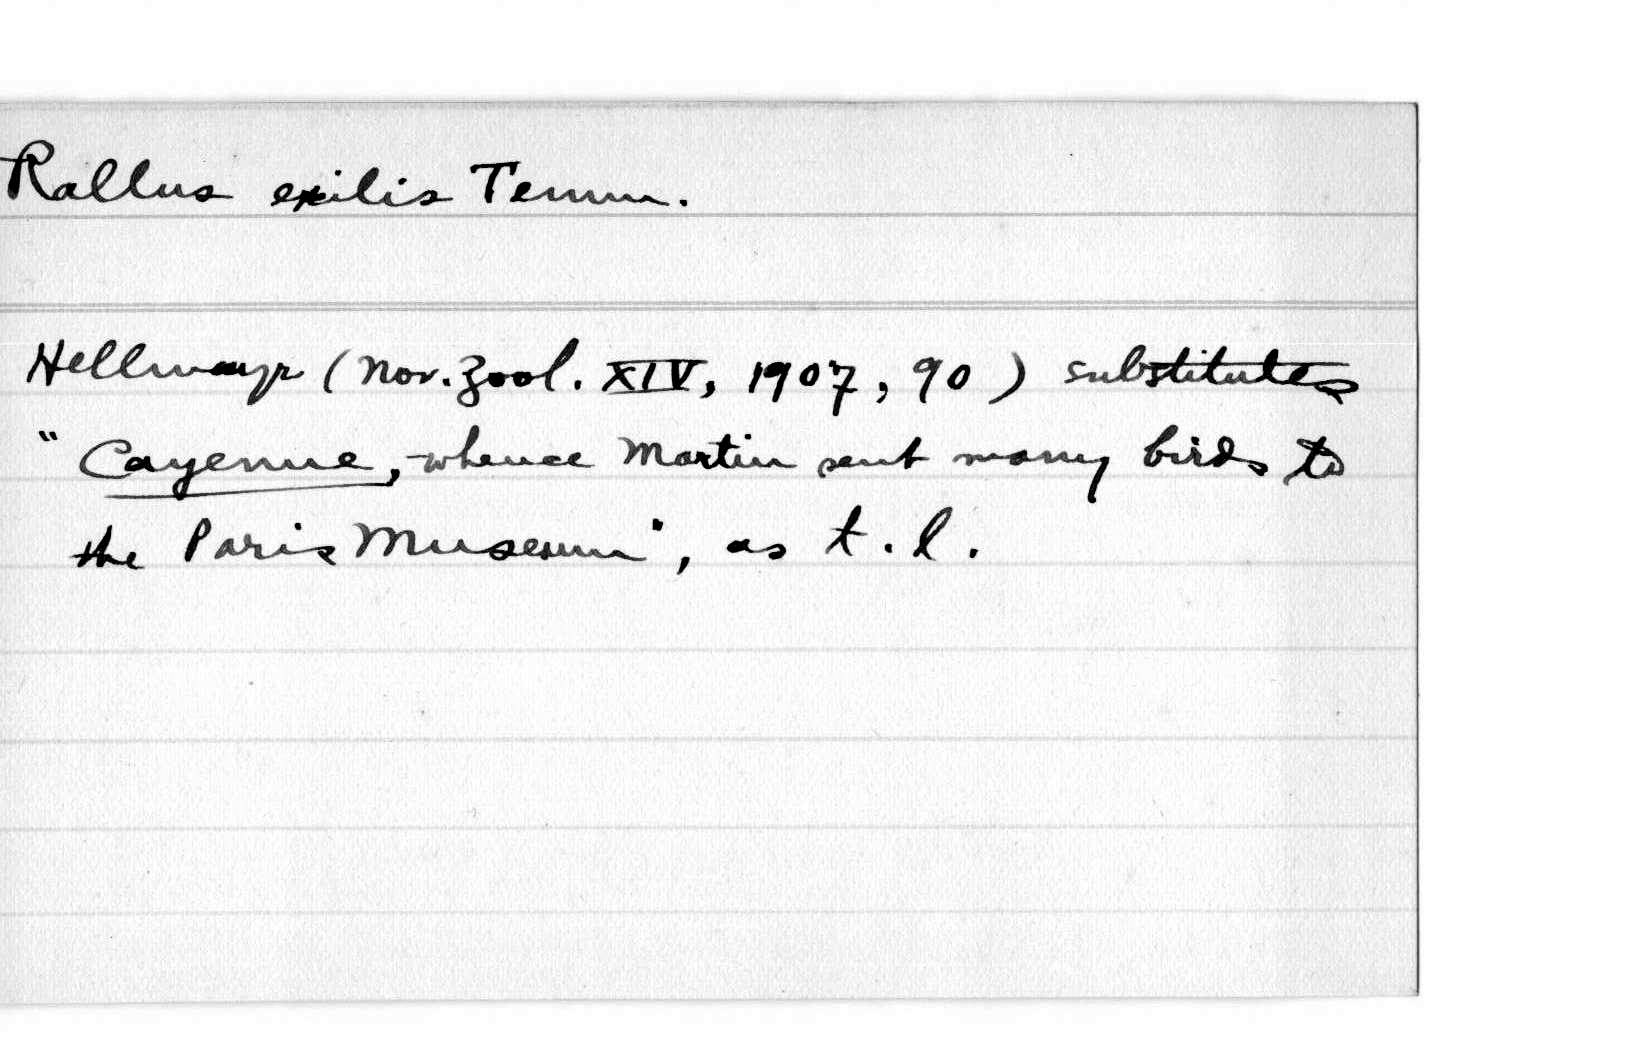 Rallus exilis Temm.
Hellmayr (Nov. Zool. XIV, 1907, 90) substitutes
"Cayenne, whence Martin sent many birds to
the Paris Museum", as t.l.